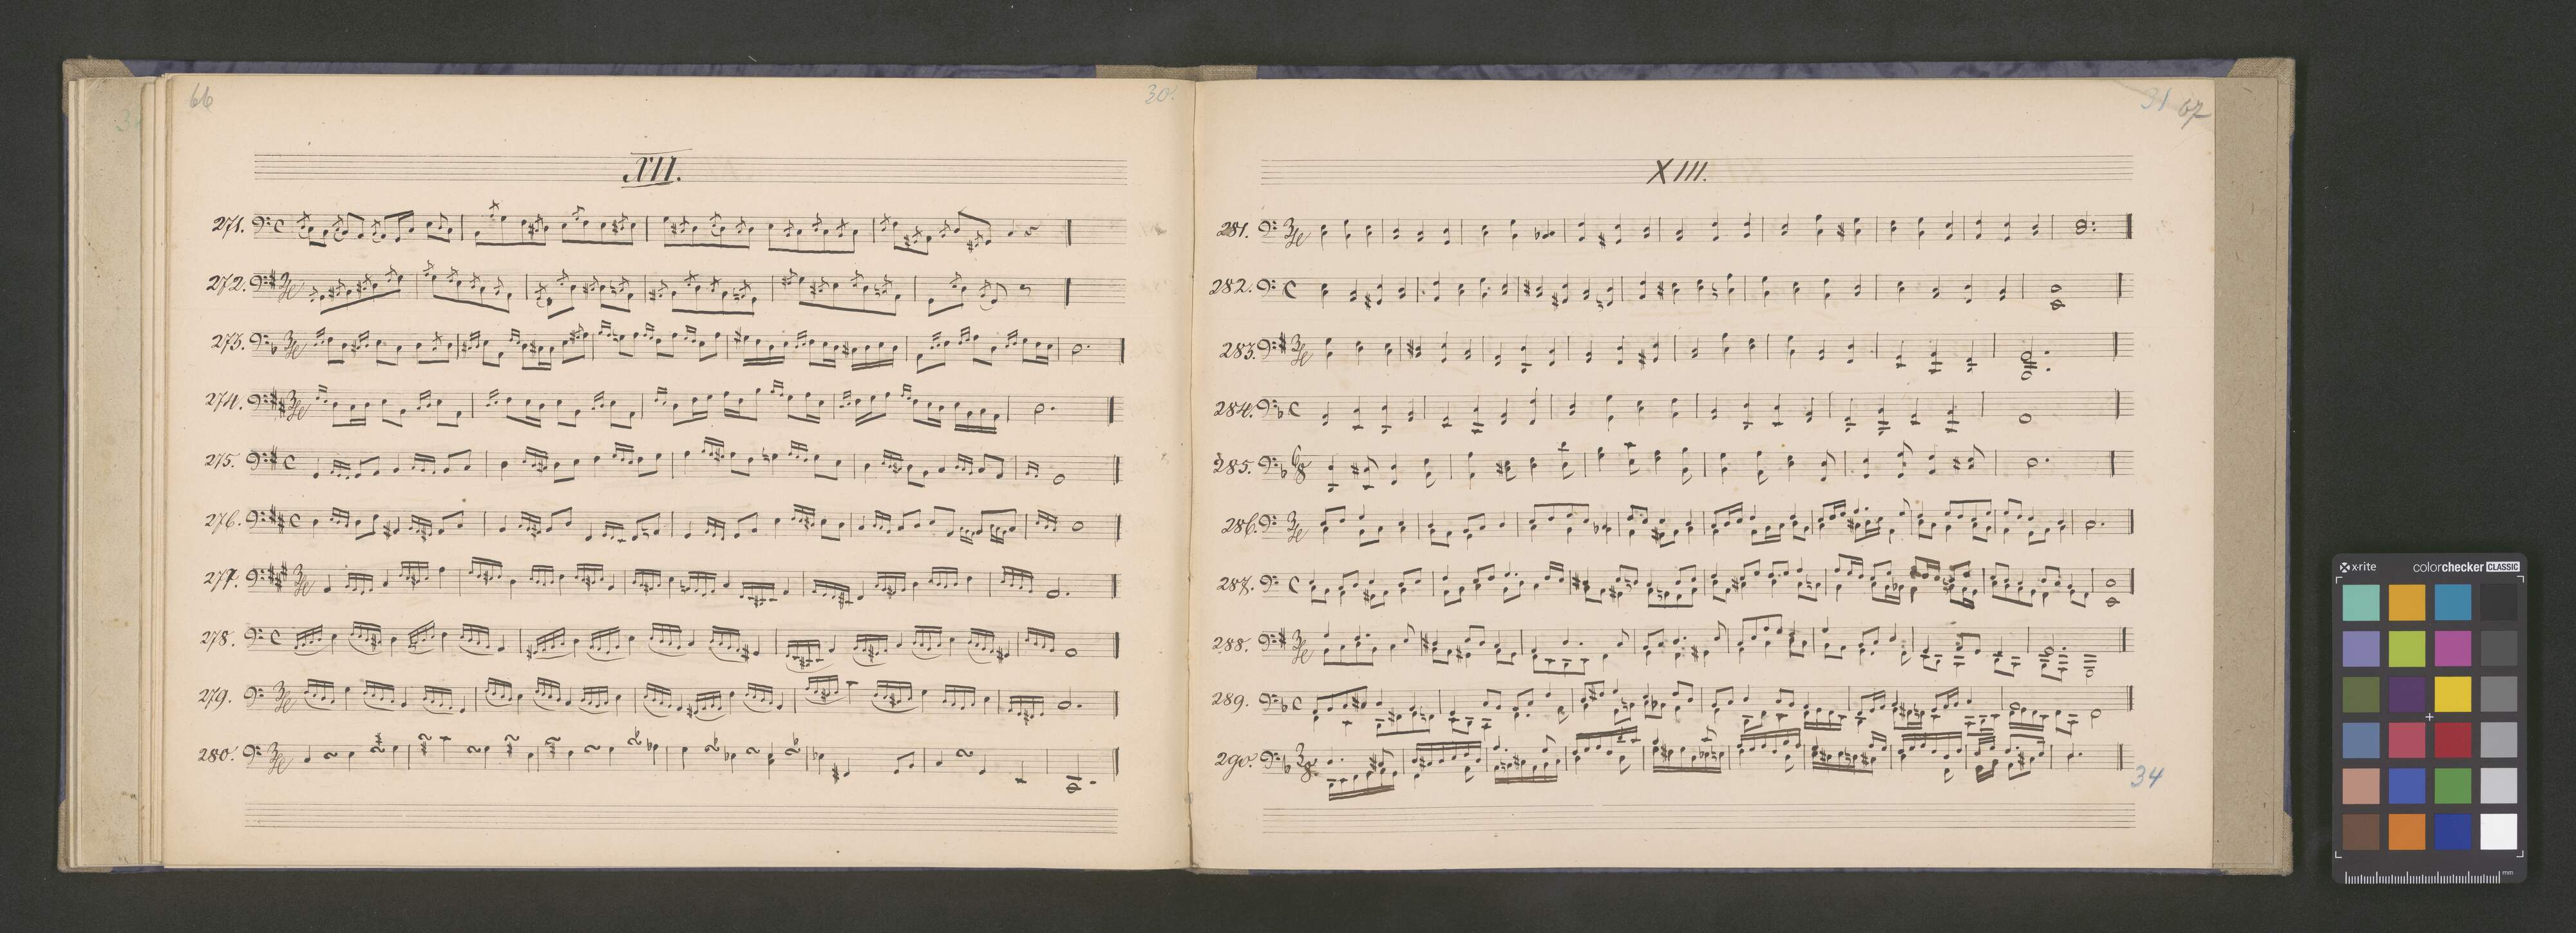 66
30.
XII.
271.
272.
273.
274.
275.
276.
277.
278.
279.
280.
31 67
XIII.
281.
282.
283.
284.
285.
286.
287.
288.
289.
290.
34
x-rite
colorchecker CLASSIC
mm